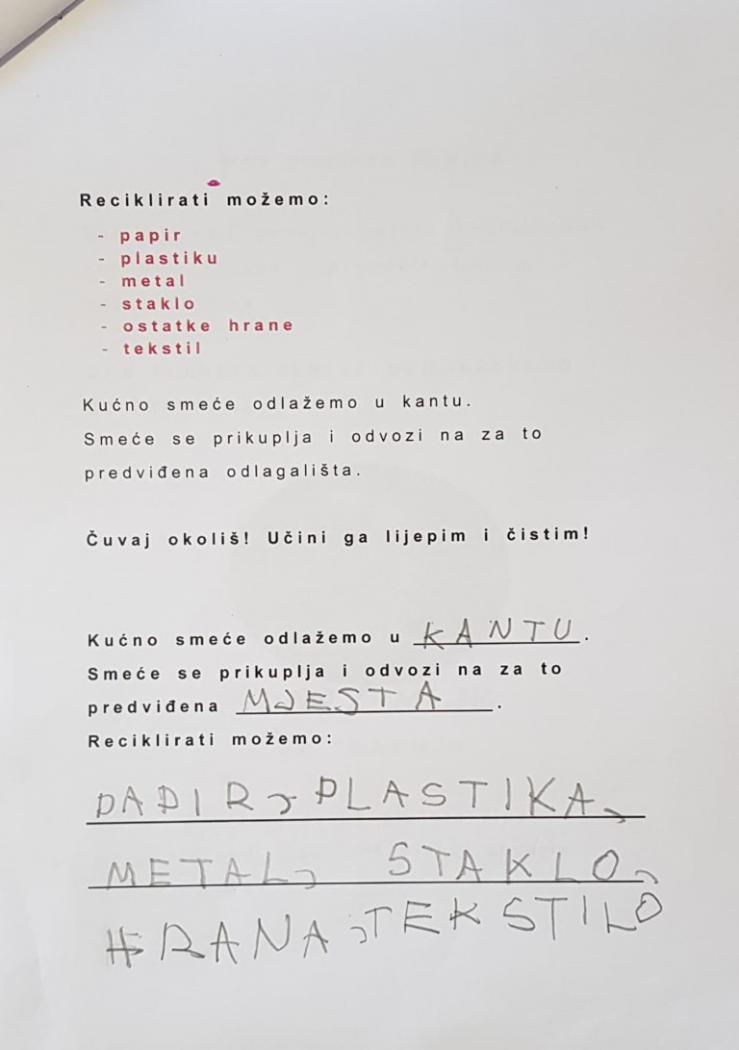 Reciklirati možemo:
- papir
- plastiku
- metal
- staklo
- ostatke hrane
- tekstil
Kućno smeće odlažemo u kantu.
Smeće se prikuplja i odvozi na za to
predviđena odlagališta.
Čuvaj okoliš! Učini ga lijepim i čistim!
Kućno smeće odlažemo u KANTU.
Smeće se prikuplja i odvozi na za to
predviđena MJESTA.
Reciklirati možemo:
PAPIR, PLASTIKA,
METAL, STAKLO,
HRANA, TEKSTILO